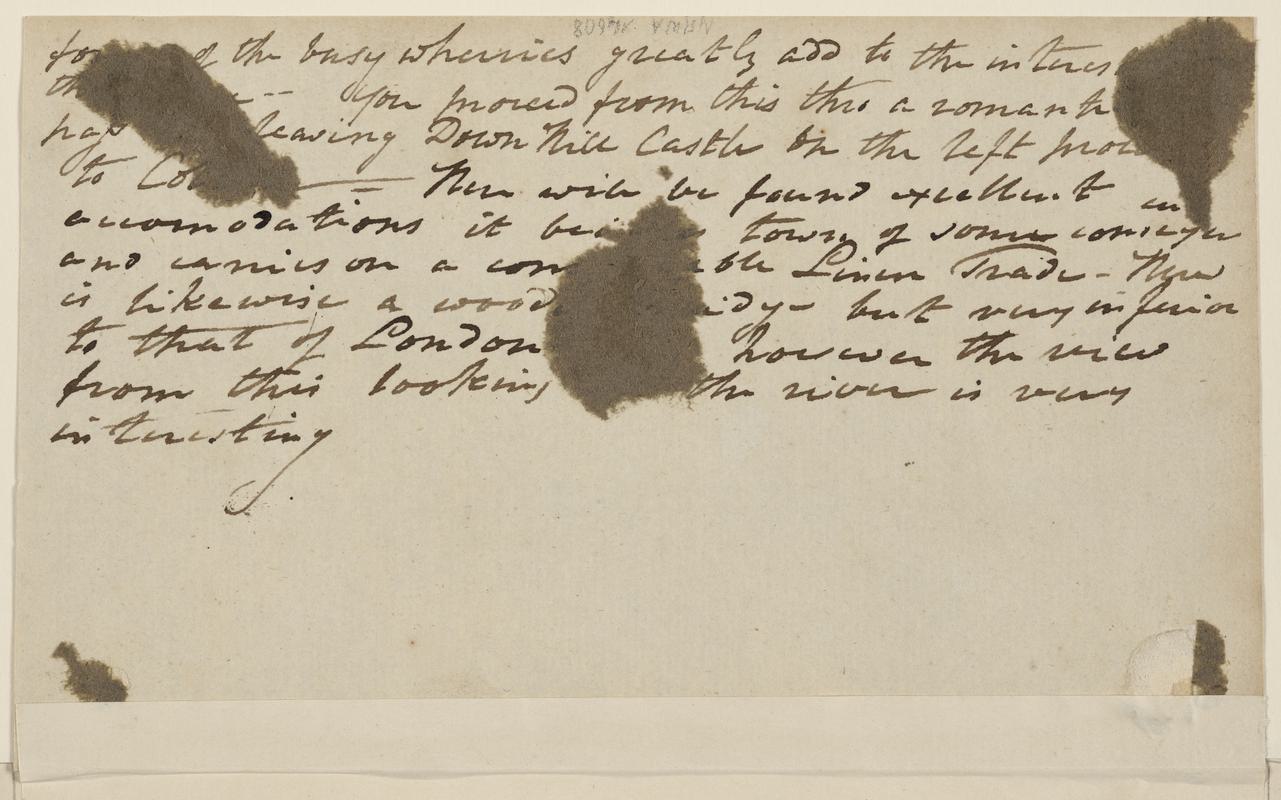 of the busy wherries greatly add to the interes
You proceed from this thro a romantic
leaving Down Hill Castle on the left
to Here will be found excellent
accomodations it town of some conseq
and carries on a Linen Trade - Here
is likewise a but very inferior
to that of London however the view
from this looking the river is very
interesting